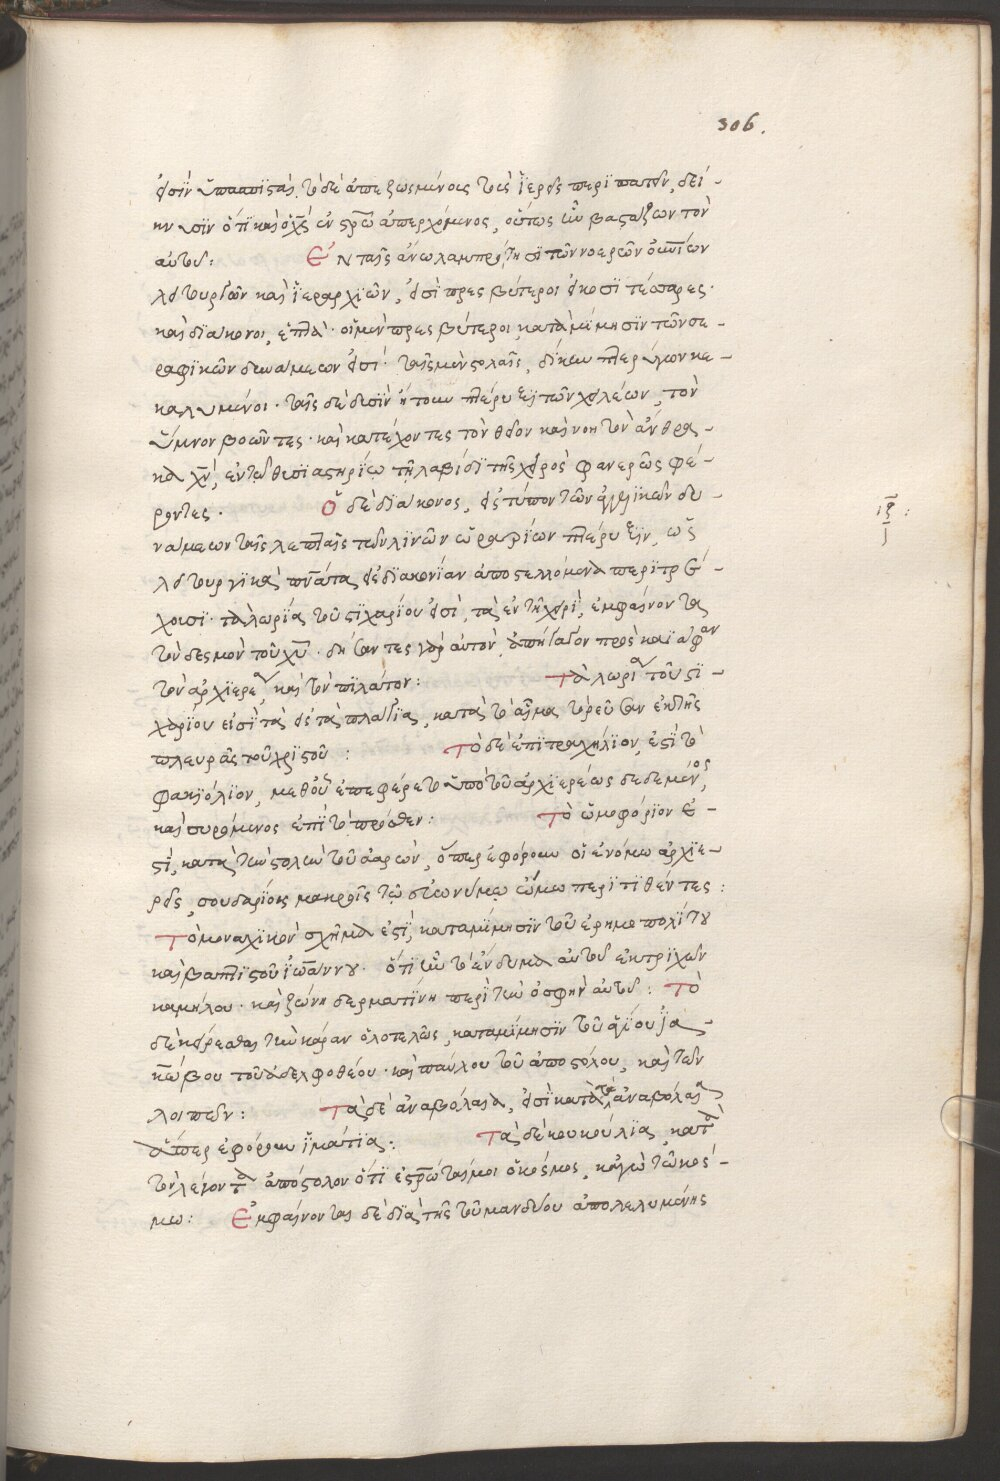 306.
εἰσὶν ὑπασπισταί. τὸ δὲ ἀπεζωσμένους τοὺς ἱερεῖς περιπατεῖν, δεί-
κνυσιν ὅτι καὶ ὁ χς ἐν στρῶ ἀπερχόμενος, οὕτως ἦν βαστάζων τὸν
αὐτοῦ: Ἐν ταῖς ἀνω λαμπρότησι τῶν νοερῶν οὐνίων
λειτουργιῶν καὶ ἱεραρχιῶν, εἰσὶ πρεσβύτεροι εἰκοσιτέσσαρες.
καὶ διάκονοι, ἑπτά. οἱ μὲν πρεσβύτεροι, κατὰ μίμησιν τῶν σε-
ραφικῶν δυνάμεων εἰσί. ταῖς μὲν στολαῖς, δίκην πτερύγων κε-
καλυμμένοι. ταῖς δὲ δυσὶν ἤτουν πτέρυξι τῶν χειλέων, τὸν
ὕμνον βοῶντες. καὶ κατέχοντες τὸν θεῖον καὶ νοητὸν ἄνθρα-
κα χν, ἐν τῶ θυσιαστηρίω τῆ λαβίδι τῆς χειρὸς φανερῶς φέ-
ροντες. Ὁ δὲ διάκονος, εἰς τύπον τῶν ἀγγελικῶν δυ-
νάμεων ταῖς λεπταῖς τῶν λινῶν ὡραρίων πτέρυξιν, ὡς
λειτουργικὰ πνάτα εἰς διακονίαν ἀποστελλόμενα περιτρέ-
χουσι. τὰ λωρία τοῦ στιχαρίου εἰσὶ, τὰ ἐν τῆ χειρὶ, ἐμφαίνοντα
τὸν δεσμὸν τοῦ χυ. δήσαντες γὰρ αὐτὸν, ἀπήγαγον πρὸς καϊάφαν
τὸν ἀρχιερέα, καὶ τὸν πιλάτον: Τὰ λωρία τοῦ στι-
χαρίου εἰσὶ τὰ εἰς τὰ πλάγια, κατὰ τὸ αἷμα τὸ ρεῦσαν ἐκ τῆς
πλευρᾶς τοῦ χριστοῦ: Τὸ δὲ ἐπιτραχήλιον, ἐστὶ τὸ
φακιόλιον, μεθ' οὗ ἐπεφέρετο ὑπὸ τοῦ ἀρχιερέως δεδεμένος,
καὶ συρόμενος ἐπὶ τὸ πρόσθεν: Τὸ ὠμοφόριον ἐ-
στὶ, κατὰ τὴν στολὴν τοῦ ἀαρών, ὅπερ ἐφόρουν οἱ ἐν νόμω ἀρχιε-
ρεῖς, σουδαρίοις μακροῖς τῶ εὐωνύμω ὤμω περιτιθέντες:
Τὸ μοναχικὸν σχῆμα ἐστὶ, κατὰ μίμησιν τοῦ ἐρημοπολίτου
καὶ βαπτιστοῦ ἰωάννου. ὅτι ἦν τὸ ἔνδυμα αὐτοῦ ἐκ τριχῶν
καμήλου. καὶ ζώνη δερματίνη περὶ τὴν ὀσφὴν αὐτοῦ: Τὸ
δὲ κείρεσθαι τὴν κάραν ὁλοτελῶς, κατὰ μίμησιν τοῦ ἁγίου ἰα-
κώβου τοῦ ἀδελφοθέου. καὶ παύλου τοῦ ἀποστόλου, καὶ τῶν
λοιπῶν: Τὰ δὲ ἀναβόλαια, εἰσὶ κατὰ τὰ ἀναβόλαια
ἅπερ ἐφόρουν ἱμάτια: Τὰ δὲ κουκούλια, κατὰ
τὸν λέγοντα ἀπόστολον ὅτι ἐστρώταί μοι ὁ κόσμος, κἀγὼ τῶ κόσ-
μω: Ἐμφαίνονται δὲ διὰ τῆς τοῦ μανδύου ἀπολελυμένης
ιξ: